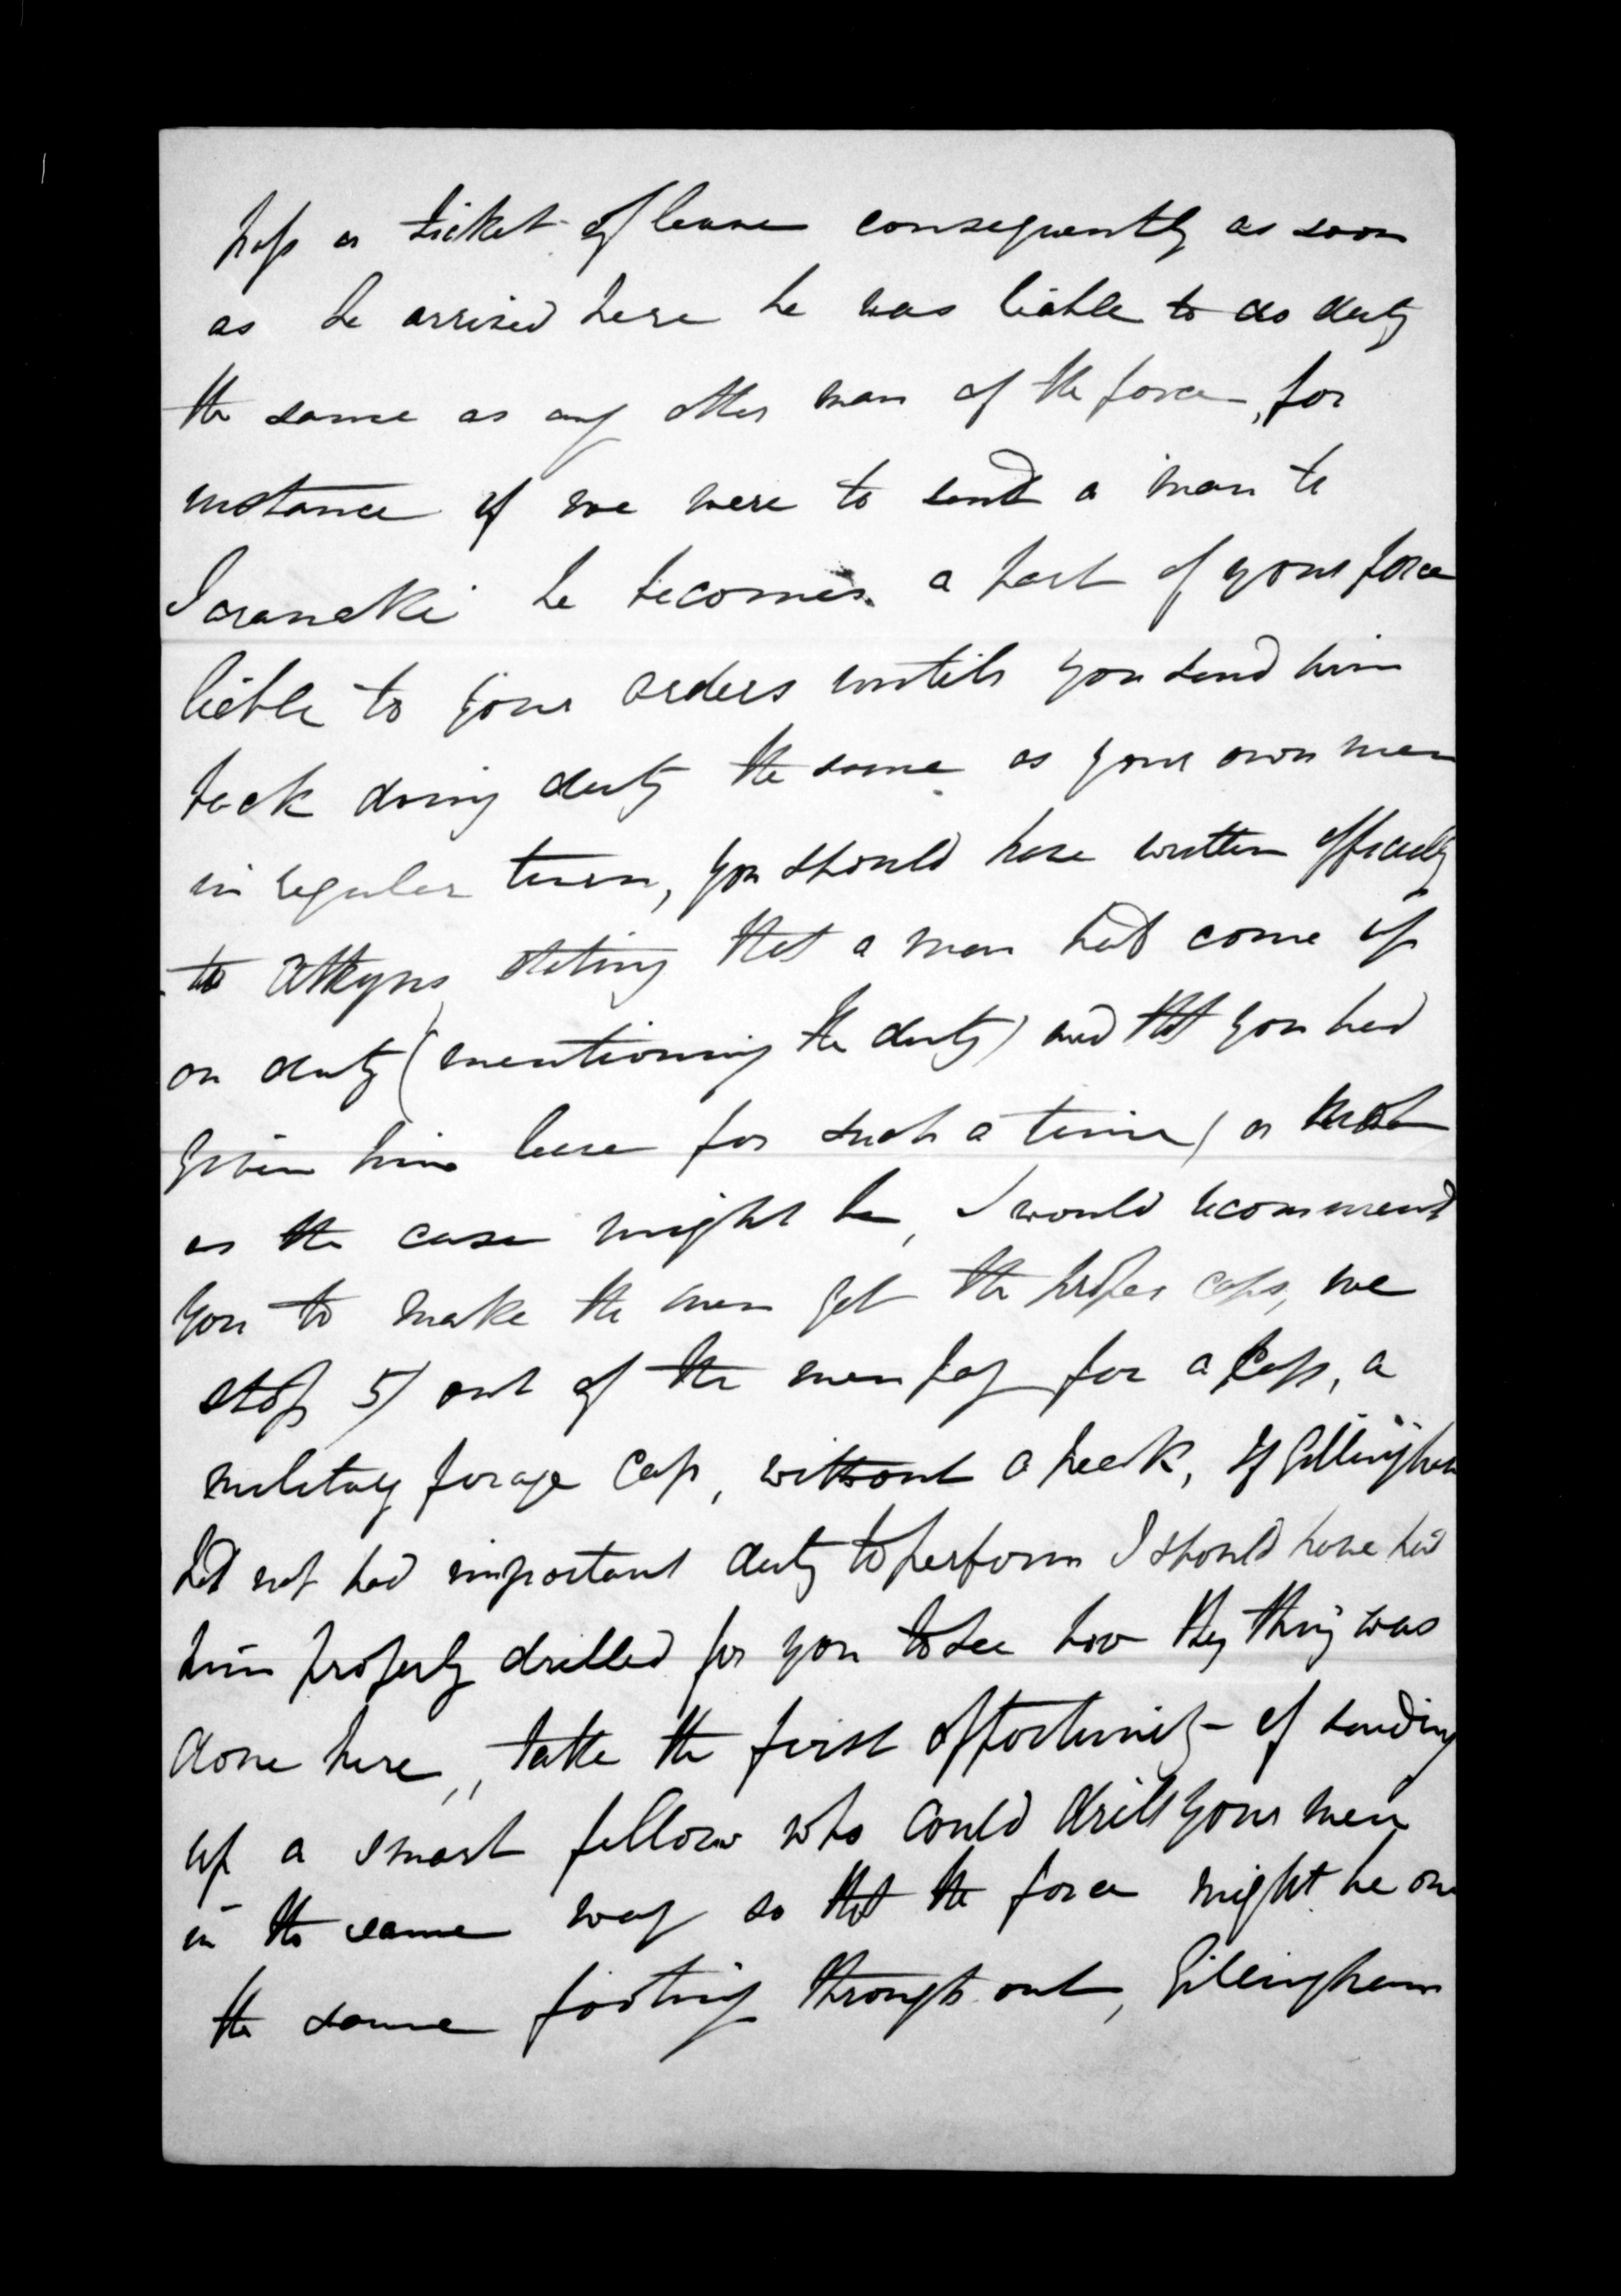 pass or ticket of leave consequently as soon
as he arrived here he was liable to do duty
the same as any other man of the force, for
instance if we were to send a man to
Taranaki he becomes a part of your force
liable to your orders untill you send him
back doing duty the same as your own men
in regular turn, you should have written officially
to Atkyns stating that a man had come up
on duty (mentioning the duty) and that you had
given him leave for such a time, or not
as the case might be, I would recommend
you to make the men get the proper caps, we
stop 5/ out of the men pay for a cap, a
military forage cap, without a peak, If Gillingham
had not had important duty to perform I should have had
him properly drilled for you to see how the thing was
done here, take the first opportunity of sending
up a smart fellow who could drill your men
in the same way so that the force might be on
the same footing throughout, Gillingham